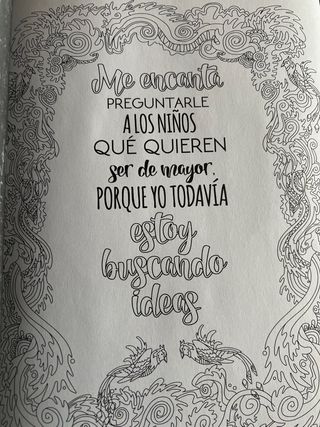 Me encanta
PREGUNTARLE
A LOS NIÑOS
QUÉ QUIEREN
ser de mayor,
PORQUE YO TODAVÍA
estoy
buscando
ideas